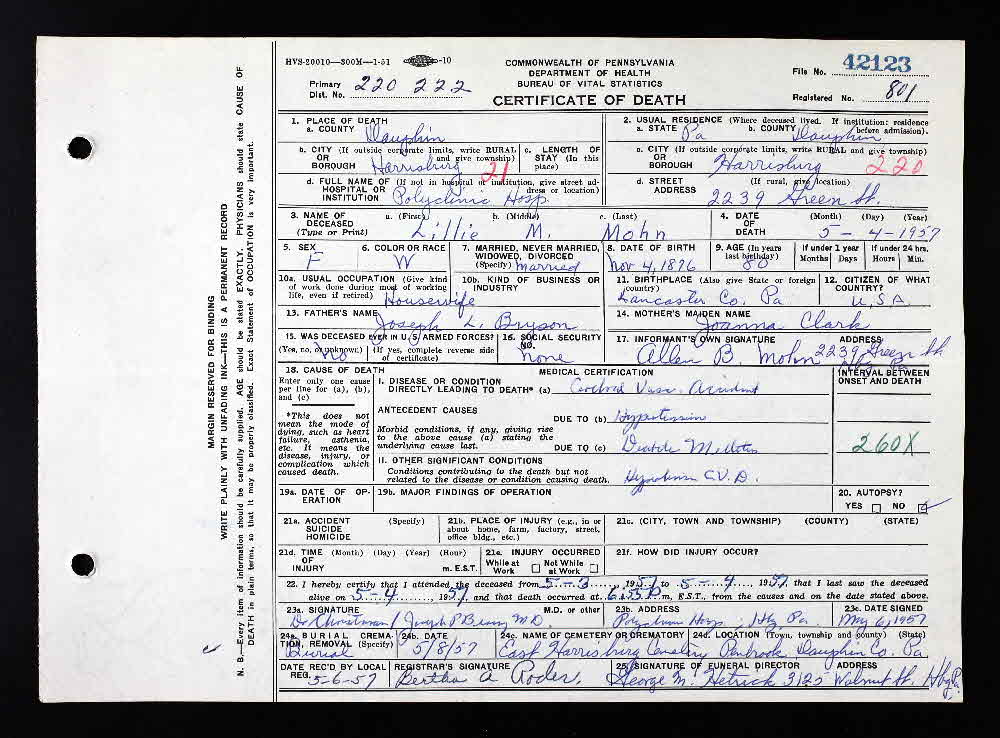 HVS-20010—300M—1-51 -10
COMMONWEALTH OF PENNSYLVANIA
DEPARTMENT OF HEALTH
BUREAU OF VITAL STATISTICS
CERTIFICATE OF DEATH
File No. 42123
Primary Dist. No. 220 222
Registered No. 801
MARGIN RESERVED FOR BINDING
WRITE PLAINLY WITH UNFADING INK—THIS IS A PERMANENT RECORD
N. B.—Every item of information should be carefully supplied. AGE should be stated EXACTLY. PHYSICIANS should state CAUSE OF
DEATH in plain terms, so that it may be properly classified. Exact Statement of OCCUPATION is very important.
1. PLACE OF DEATH
a. COUNTY Dauphin
2. USUAL RESIDENCE (Where deceased lived. If institution: residence before admission).
a. STATE Pa b. COUNTY Dauphin
b. CITY (If outside corporate limits, write RURAL and give township)
OR BOROUGH Harrisburg 21
c. LENGTH OF STAY (In this place)
c. CITY (If outside corporate limits, write RURAL and give township)
OR BOROUGH Harrisburg 220
d. FULL NAME OF (If not in hospital or institution, give street address or location)
HOSPITAL OR INSTITUTION Polyclinic Hosp.
d. STREET ADDRESS (If rural, give location)
2239 Green St.
3. NAME OF DECEASED (Type or Print)
a. (First) b. (Middle) c. (Last)
Lillie M. Mohn
4. DATE OF DEATH (Month) (Day) (Year)
5-4-1957
5. SEX F
6. COLOR OR RACE W
7. MARRIED, NEVER MARRIED, WIDOWED, DIVORCED (Specify) married
8. DATE OF BIRTH Nov 4, 1876
9. AGE (In years last birthday) 80
If under 1 year Months Days
If under 24 hrs. Hours Min.
10a. USUAL OCCUPATION (Give kind of work done during most of working life, even if retired) Housewife
10b. KIND OF BUSINESS OR INDUSTRY
11. BIRTHPLACE (Also give State or foreign country) Lancaster Co. Pa
12. CITIZEN OF WHAT COUNTRY? U.S.A.
13. FATHER'S NAME Joseph L. Bryson
14. MOTHER'S MAIDEN NAME Joanna Clark
15. WAS DECEASED EVER IN U.S. ARMED FORCES?
(Yes, no, or unknown) No (If yes, complete reverse side of certificate)
16. SOCIAL SECURITY NO. None
17. INFORMANT'S OWN SIGNATURE ADDRESS
Allen B Mohn 2239 Green St
18. CAUSE OF DEATH
Enter only one cause per line for (a), (b), and (c)
*This does not mean the mode of dying, such as heart failure, asthenia, etc. It means the disease, injury, or complication which caused death.
MEDICAL CERTIFICATION
INTERVAL BETWEEN ONSET AND DEATH
I. DISEASE OR CONDITION
DIRECTLY LEADING TO DEATH* (a) Cerebral Vasc. Accident
ANTECEDENT CAUSES
Morbid conditions, if any, giving rise to the above cause (a) stating the underlying cause last.
DUE TO (b) Hypertension
DUE TO (c) Diabetes Mellitus
260X
II. OTHER SIGNIFICANT CONDITIONS
Conditions contributing to the death but not related to the disease or condition causing death.
C.V.D.
19a. DATE OF OPERATION
19b. MAJOR FINDINGS OF OPERATION
20. AUTOPSY?
YES NO
21a. ACCIDENT SUICIDE HOMICIDE (Specify)
21b. PLACE OF INJURY (e.g., in or about home, farm, factory, street, office bldg., etc.)
21c. (CITY, TOWN AND TOWNSHIP) (COUNTY) (STATE)
21d. TIME OF INJURY (Month) (Day) (Year) (Hour) m. E.S.T.
21e. INJURY OCCURRED
While at Work Not While at Work
21f. HOW DID INJURY OCCUR?
22. I hereby certify that I attended the deceased from 5-3, 1957 to 5-4, 1957, that I last saw the deceased
alive on 5-4, 1957, and that death occurred at 6:55 P.m, E.S.T., from the causes and on the date stated above.
23a. SIGNATURE M.D. or other
Dr Christman / Joseph P M.D.
23b. ADDRESS Polyclinic Hosp., Hbg Pa.
23c. DATE SIGNED May 6, 1957
24a. BURIAL, CREMATION, REMOVAL (Specify) Burial
24b. DATE 5/8/57
24c. NAME OF CEMETERY OR CREMATORY East Harrisburg Cemetery
24d. LOCATION (Town, township and county) (State) Penbrook Dauphin Co. Pa
DATE REC'D BY LOCAL REG. 5-6-57
REGISTRAR'S SIGNATURE Bertha A
25. SIGNATURE OF FUNERAL DIRECTOR ADDRESS
George M. Hetrick 3125 Walnut St. Hbg Pa